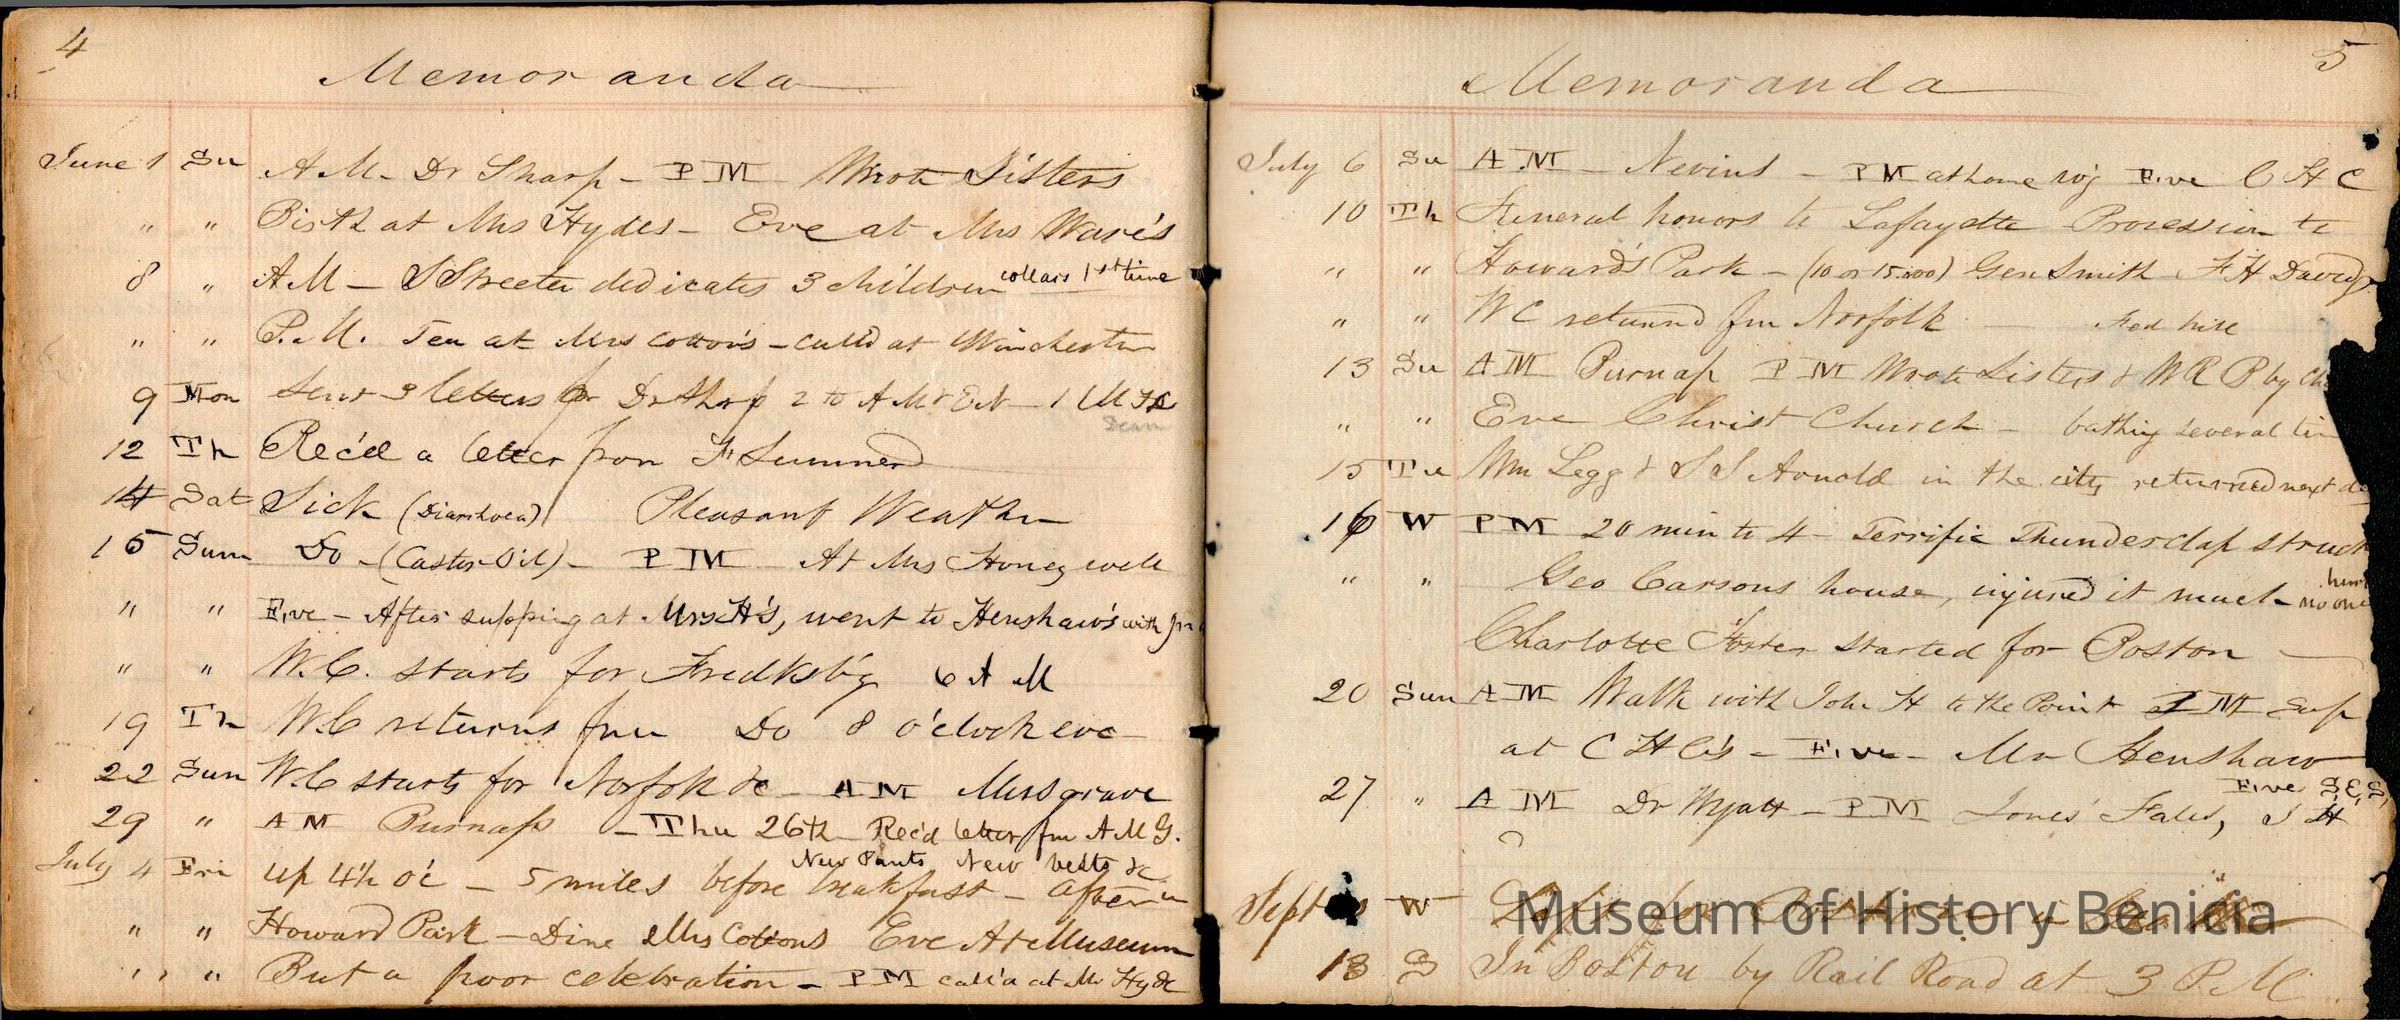 4
Memoranda
June 1 Su A.M. Dr Sharp - P M Wrote Sisters
" " Birth at Mrs Hydes - Eve at Mrs Ware's
8 " A M - S Streeter dedicates 3 children collars 1st time
" " P. M. Tea at Mrs Cotton's - call'd at Winchester
9 Mon Sent 3 letters for Dr Sharp 2 to A M & E N - 1
12 Th Rec'd a letter from F Sumner
14 Sat Sick (Diarrhoea) Pleasant Weather
15 Sun Do - (Castor Oil) - P M At Mrs Honeywell
" " Eve - After supping at Mrs H's, went to Henshaw's with
" " W. C. starts for Fredksb'g 6 A M
19 Th W. C returns from Do 8 o'clock eve -
22 Sun W. C starts for Norfolk &c - A M Musgrave
29 " A M Burnap - Thu 26th Rec'd letter fm A M G.
New Pants, New belts &c
July 4 Fri up 4½ o'c - 5 miles before breakfast - aftern
" " Howard Park - Dine Mrs Cottons Eve At Museum
" " But a poor celebration - P M call'd at Mr Hyde
5
Memoranda
July 6 Su A M - Nevins - P M at home Eve C H C
10 Th Funeral honors to Lafayette Procession to
" " Howard's Park - (10 or 15.000) Gen Smith - F H Davidge
" " W C returnd fm Norfolk - Fed hill
13 Su A M Burnap P M Wrote Sisters & W R P by
" " Eve Christ Church - bathing several
15 Tu Wm Legg & S S Arnold in the city returned next
16 W P M 20 min to 4 - Terrific Thunderclap struck
" " Geo Carsons house, injured it much - no one
Charlotte Foster started for Boston
20 Sun A M Walk with John H to the Point P M Sup
at C H C's - Eve - Mr Henshaw
Eve S.E.S.
27 " A M Dr Wyatt - P M Jones' Fales, J H
Sept W Left for
13 S In Boston by Rail Road at 3 P. M.
Museum of History Benicia